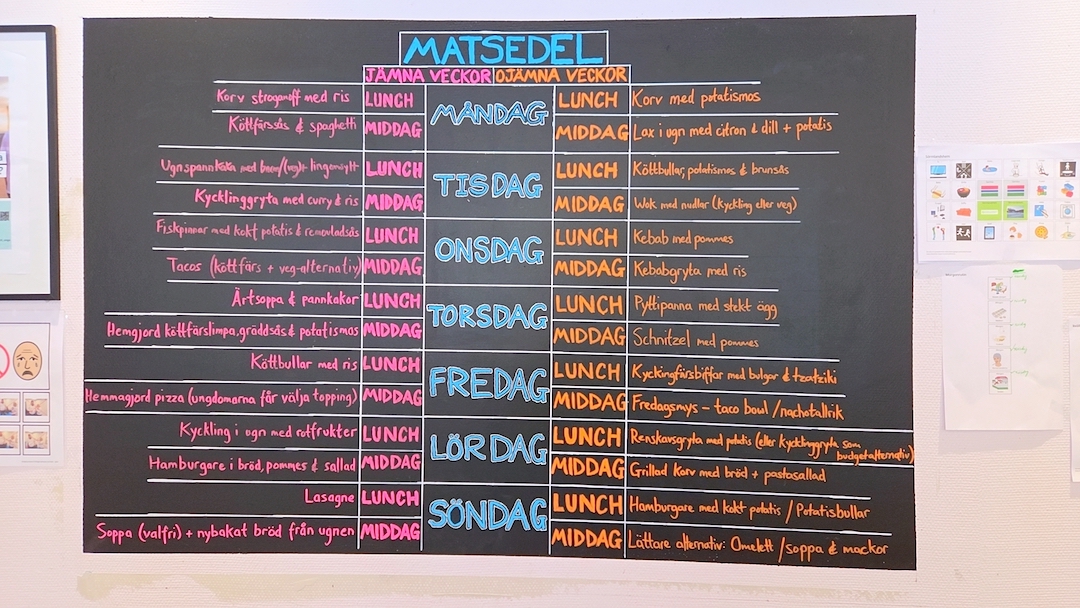 MATSEDEL
JÄMNA VECKOR OJÄMNA VECKOR
MÅNDAG
Korv stroganoff med ris LUNCH LUNCH Korv med potatismos
Köttfärssås & spaghetti MIDDAG MIDDAG Lax i ugn med citron & dill + potatis
TISDAG
Ugnspannkaka med lingonsylt LUNCH LUNCH Köttbullar, potatismos & brunsås
Kycklinggryta med curry & ris MIDDAG MIDDAG Wok med nudlar (kyckling eller veg)
ONSDAG
Fiskpinnar med kokt potatis & remouladsås LUNCH LUNCH Kebab med pommes
Tacos (köttfärs + veg-alternativ) MIDDAG MIDDAG Kebabgryta med ris
TORSDAG
Ärtsoppa & pannkakor LUNCH LUNCH Pyttipanna med stekt ägg
Hemgjord köttfärslimpa, gräddsås & potatismos MIDDAG MIDDAG Schnitzel med pommes
FREDAG
Köttbullar med ris LUNCH LUNCH Kycklingfärsbiffar med bulgar & tzatziki
Hemmagjord pizza (ungdomarna får välja topping) MIDDAG MIDDAG Fredagsmys – taco bowl / nachotallrik
LÖRDAG
Kyckling i ugn med rotfrukter LUNCH LUNCH Renskavsgryta med potatis (eller kycklinggryta som
budgetalternativ)
Hamburgare i bröd, pommes & sallad MIDDAG MIDDAG Grillad Korv med bröd + pastasallad
SÖNDAG
Lasagne LUNCH LUNCH Hamburgare med kokt potatis / Potatisbullar
Soppa (valfri) + nybakat bröd från ugnen MIDDAG MIDDAG Lättare alternativ: Omelett / soppa & mackor